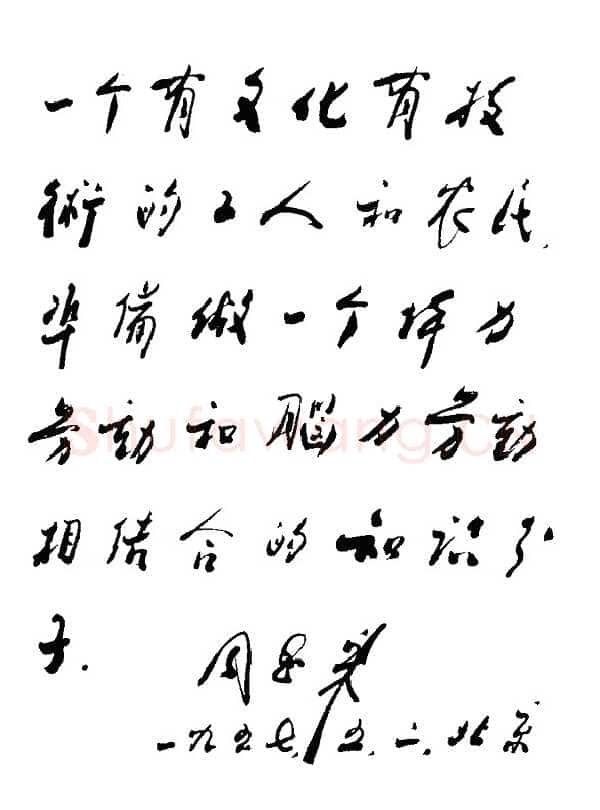 一个有文化有技
術的工人和农民，
準备做一个体力
劳动和腦力劳动
相结合的知识分
子.
周恩来
一九五七，五，二，北京
Shufawang.cn